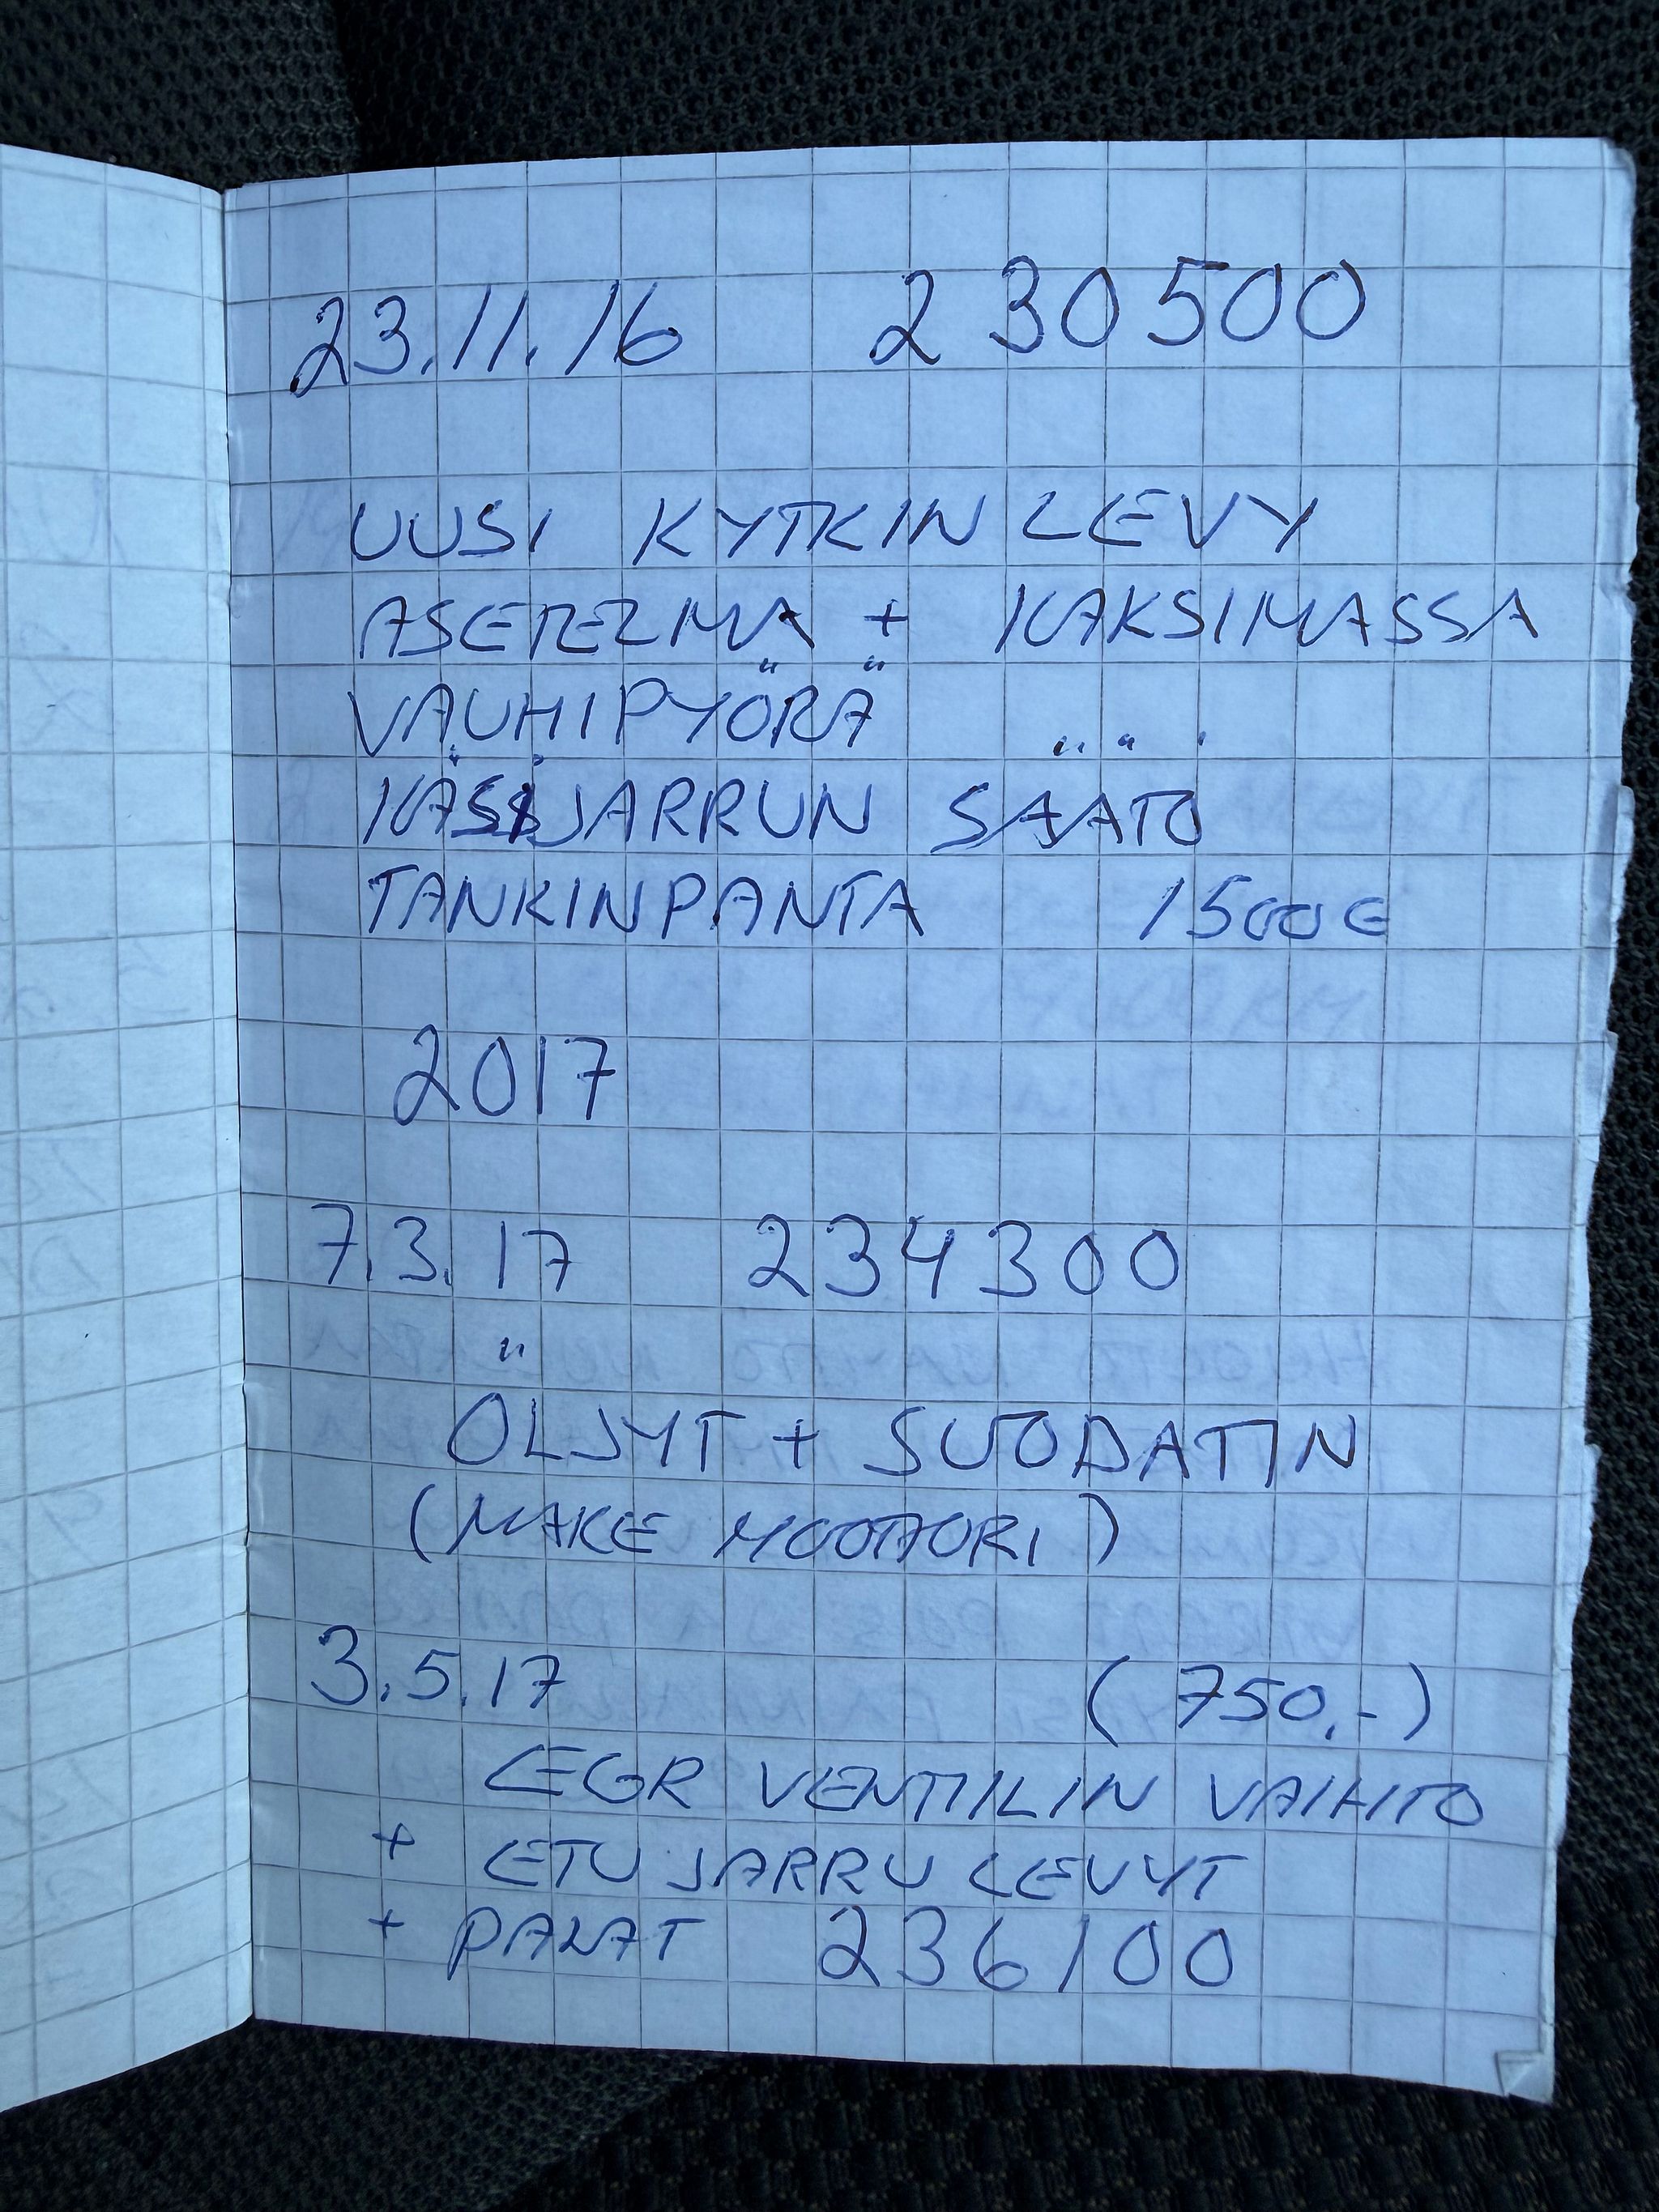 23.11.16 230500
UUSI KYTKINLEVY
ASETELMA + KAKSIMASSA
VAUHIPYÖRÄ
KÄSIJARRUN SÄÄTÖ
TANKINPANTA 1500€
2017
7.3.17 234300
ÖLJYT + SUODATIN
(MAKE MOOTTORI)
3.5.17 (750,-)
EGR VENTIILIN VAIHTO
+ ETUJARRULEVYT
+ PALAT 236100